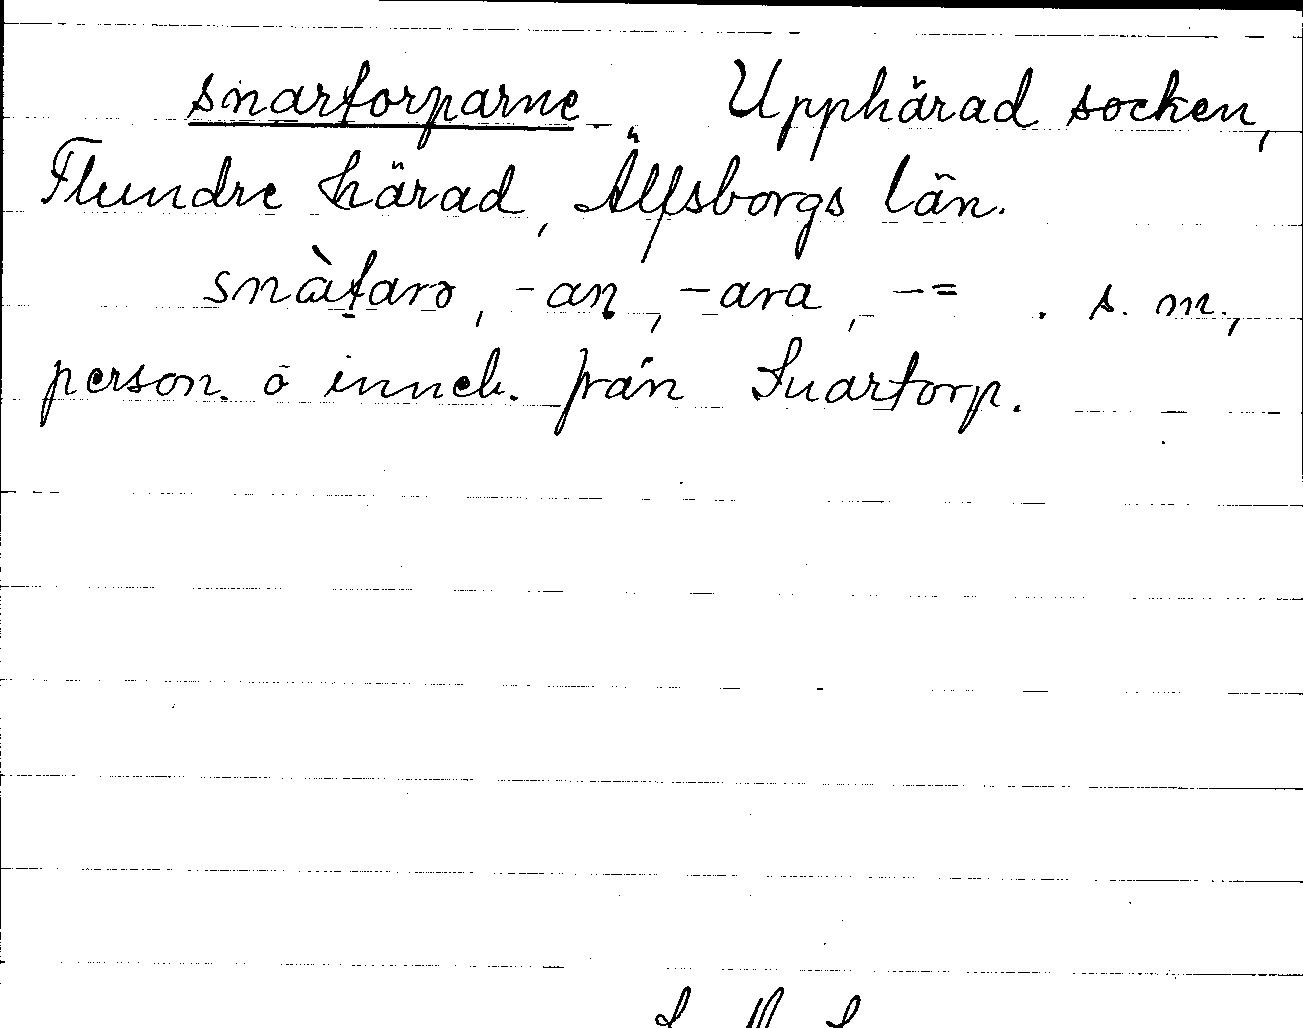 snartorparne Upphärad socken,
Flundre härad, Älfsborgs län.
snàtarə, -an, -ara, -= . s. m.,
person. o inneb. från Snartorp.